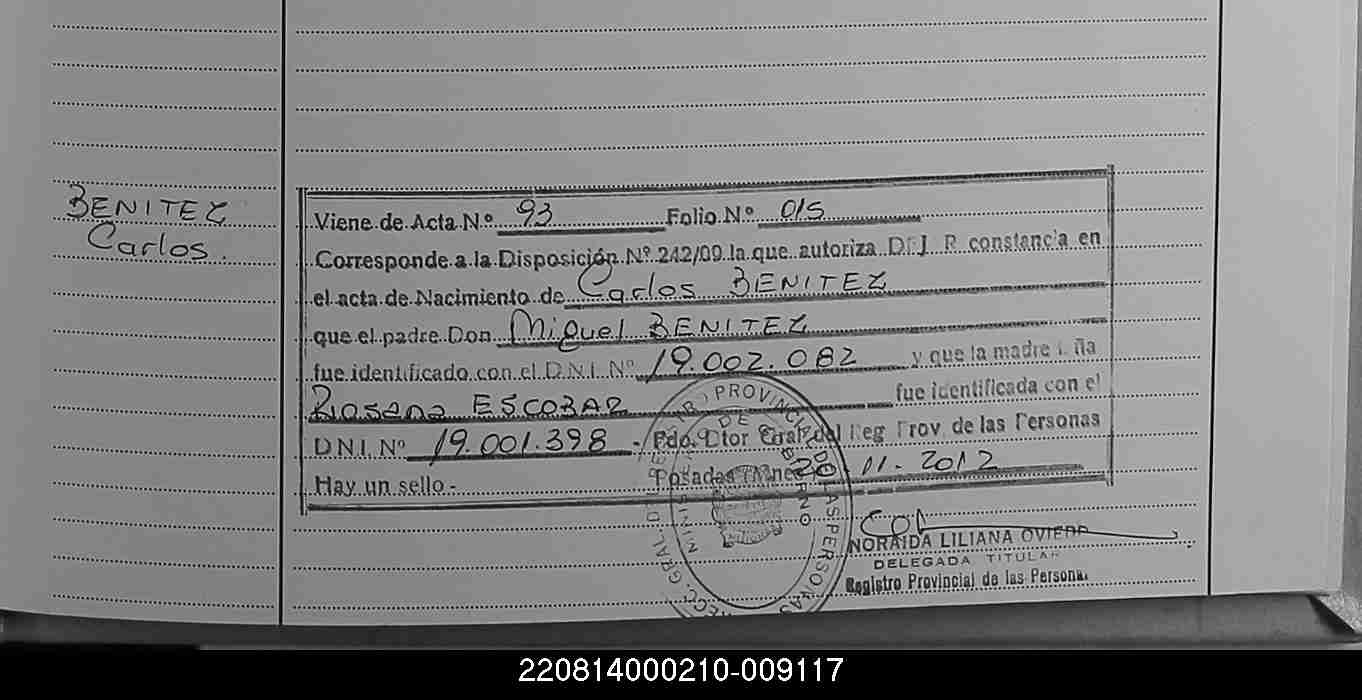 BENITEZ
Carlos.
Viene de Acta N° 93 Folio N° 015
Corresponde a la Disposición N° 242/09 la que autoriza D. J. R constancia en
el acta de Nacimiento de Carlos BENITEZ
que el padre Don Miguel BENITEZ
fue identificado con el D.N.I. N° 19.002.082 y que la madre ña
Rosana ESCOBAR fue identificada con el
D.N.I. N° 19.001.398 - Fdo. Dtor Gral del Reg Prov. de las Personas
Hay un sello - Posadas Mnes 20-11-2012
PROVINCIAL DE LAS PERSONAS
NORAIDA LILIANA OVIEDO
DELEGADA TITULAR
Registro Provincial de las Personas
220814000210-009117